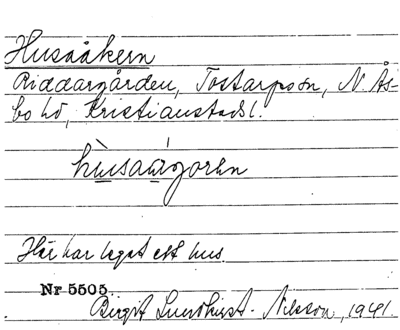 Husaåkern
Riddargården, Tostarpssn, N. Ås-
bo hd, Kristianstadsl.
Här har legat ett hus.
Nr 5505
Birgit Lundkvist-Nilsson, 1941.